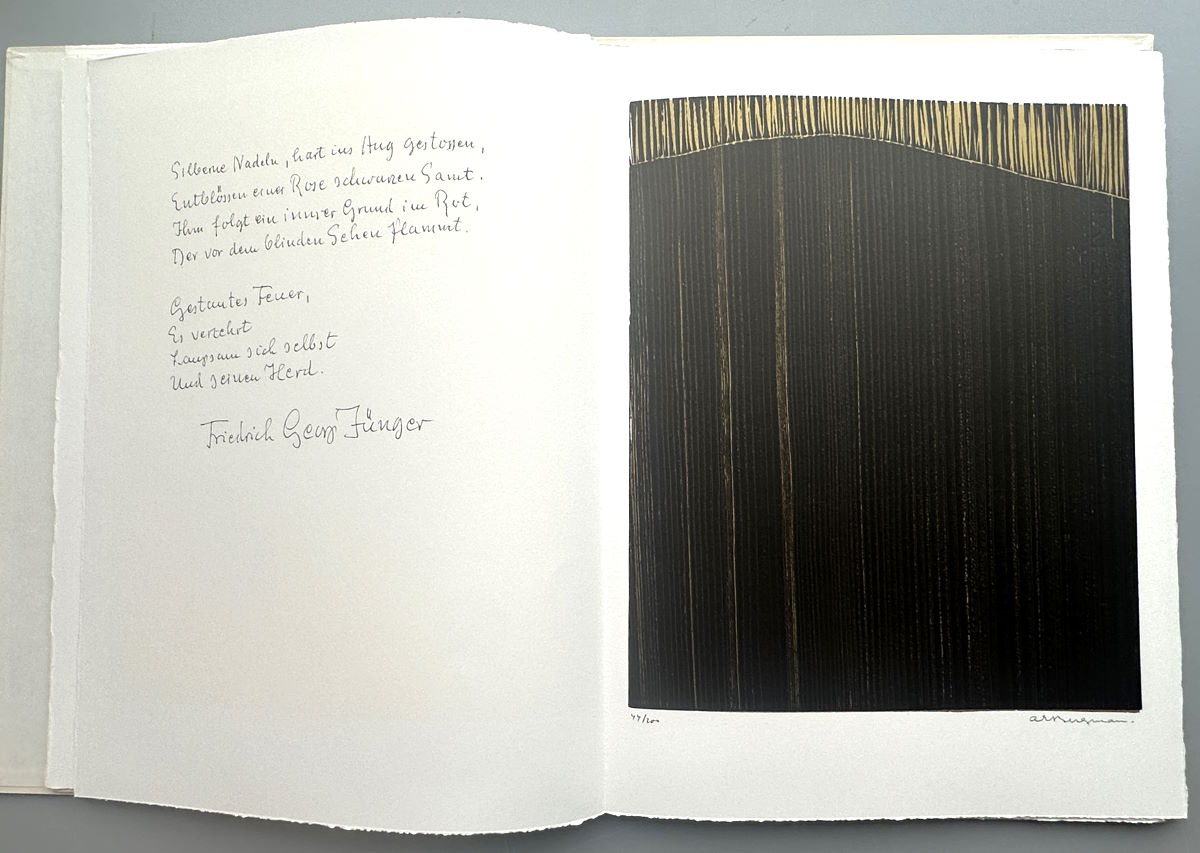 Silberne Nadeln, hart ins Aug gestossen,
Entblössen einer Rose schwarzen Samt.
Ihm folgt ein innrer Grund im Rot,
Der vor dem blinden Sehen flammt.
Gestautes Feuer,
Es verzehrt
Langsam sich selbst
Und seinen Herd.
Friedrich Georg Jünger
77/200